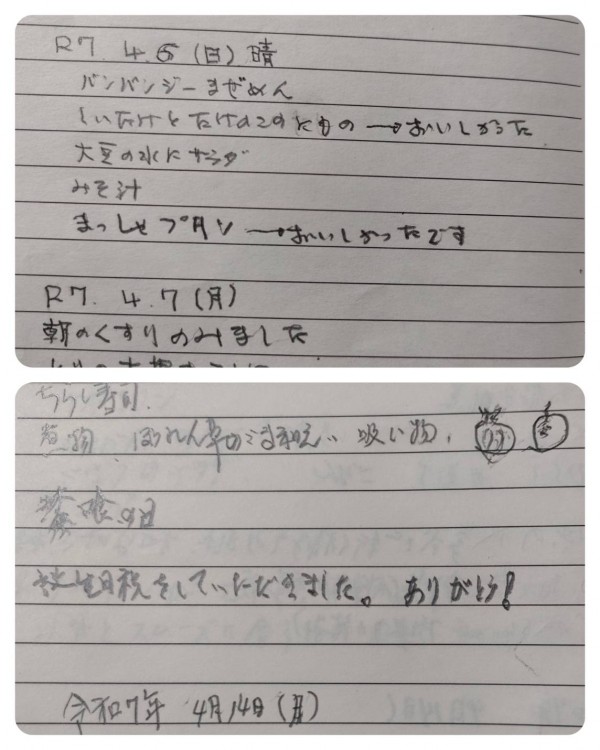 R7. 4. 6 (日) 晴
バンバンジーまぜめん
しいたけとたけのこのにもの → おいしかった
大豆の水にサラダ
みそ汁
まっしゃプリン → おいしかったです
R7. 4. 7 (月)
朝のくすりのみました
ちらし寿司.
煮物、ほうれん草のごま和え、吸い物、
会の日
誕生日祝をしていただきました。ありがとう!
令和7年 4月14日(月)